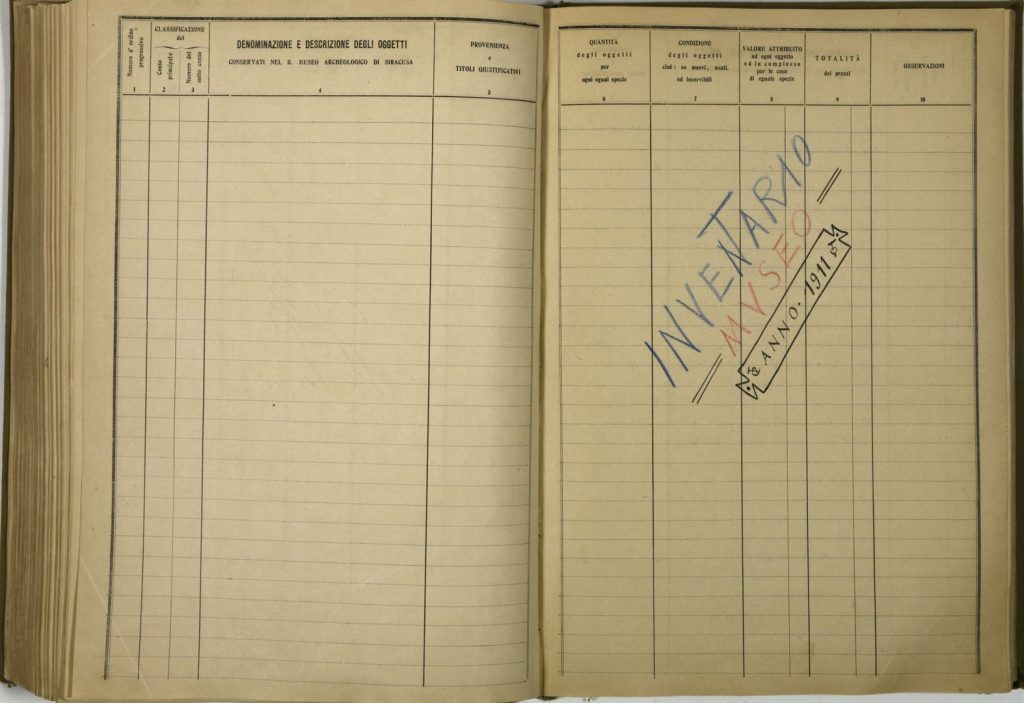 Numero d' ordine
progressivo
1
CLASSIFICAZIONE
del
Conto
principale
2
Numero del
sotto conto
3
DENOMINAZIONE E DESCRIZIONE DEGLI OGGETTI
CONSERVATI NEL R. MUSEO ARCHEOLOGICO DI SIRACUSA
4
PROVENIENZA
e
TITOLI GIUSTIFICATIVI
5
QUANTITÀ
degli oggetti
per
ogni egual specie
6
CONDIZIONE
degli oggetti
cioè: se nuovi, usati,
od inservibili
7
VALORE ATTRIBUITO
ad ogni oggetto
ed in complesso
per le cose
di eguale specie
8
TOTALITÀ
dei prezzi
9
OSSERVAZIONI
10
INVENTARIO
MVSEO
ANNO · 1911